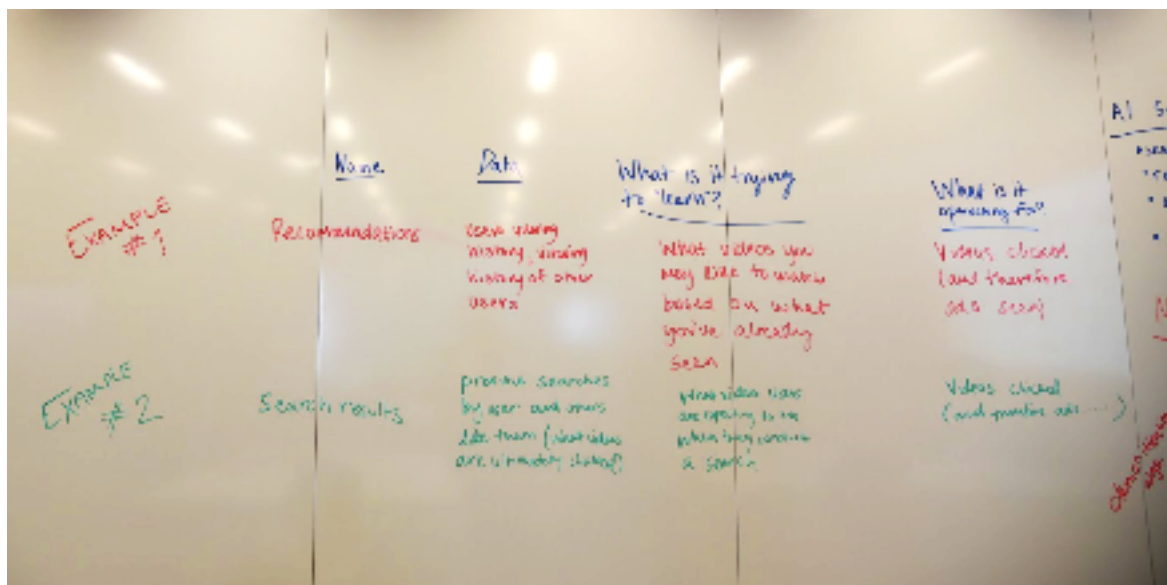 Name
Data
What is it trying
to "learn"?
What is it
optimizing for?
AI
EXAMPLE
#1
Recommendations
users viewing
history, viewing
history of other
users
What videos you
may like to watch
based on what
you've already
seen
Videos clicked
(and therefore
ads seen)
EXAMPLE
#2
Search results
previous searches
by user and others
like them (what videos
are ultimately clicked)
What video users
are expecting to see
when they conduct
a search
Videos clicked
(and therefore ads .....)